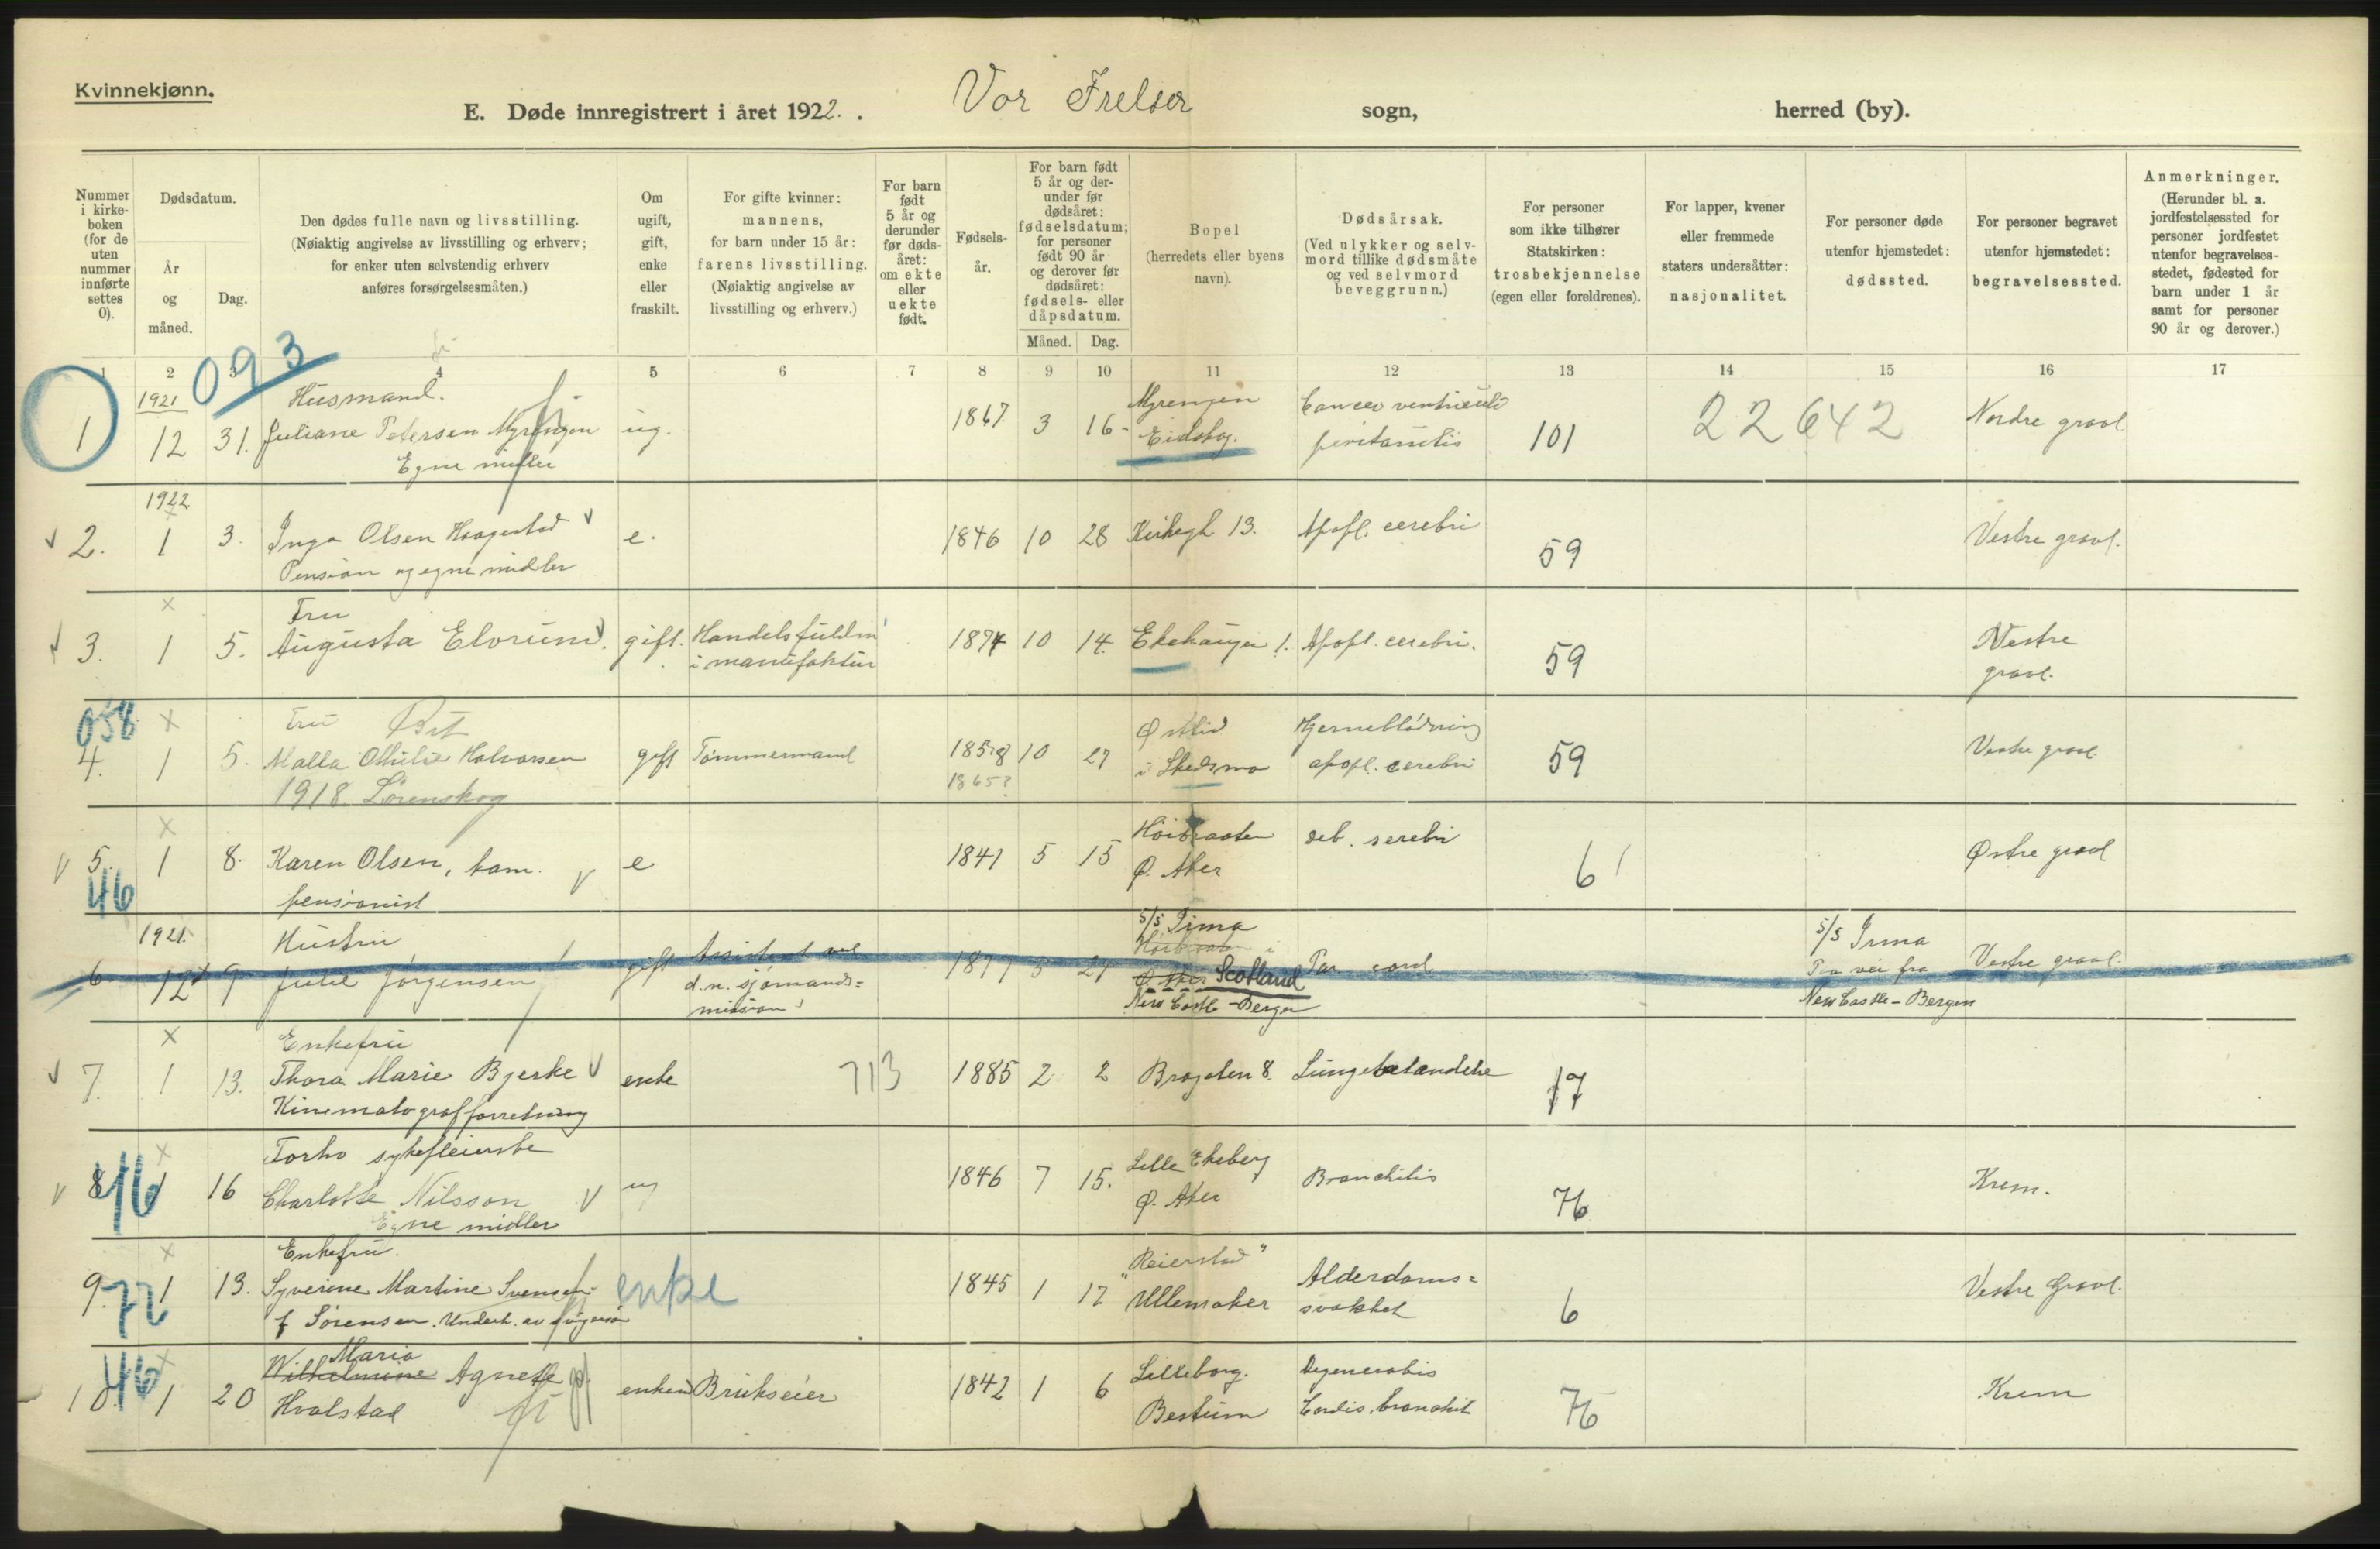 Kvinnekjønn.
E. Døde innregistrert i året 1922. Vor Frelser sogn, herred (by).
Nummer i kirke- boken (for de uten nummer innførte settes 0).
Dødsdatum.
År og måned.
Dag.
Den dødes fulle navn og livsstilling.
(Nøiaktig angivelse av livsstilling og erhverv;
for enker uten selvstendig erhverv
anføres forsørgelsesmåten.)
Om
ugift,
gift,
enke
eller
fraskilt.
For gifte kvinner:
mannens,
for barn under 15 år:
farens livsstilling.
(Nøiaktig angivelse av
livsstilling og erhverv.)
For barn
født
5 år og
derunder
før døds-
året:
om ekte
eller
uekte
født.
Fødsels-
år.
For barn født
5 år og der-
under før
dødsåret:
fødselsdatum;
for personer
født 90 år
og derover før
dødsåret:
fødsels- eller
dåpsdatum.
Måned. Dag.
Bopel
(herredets eller byens
navn).
Dødsårsak.
(Ved ulykker og selv-
mord tillike dødsmåte
og ved selvmord
beveggrunn.)
For personer
som ikke tilhører
Statskirken:
trosbekjennelse
(egen eller foreldrenes).
For lapper, kvener
eller fremmede
staters undersåtter:
nasjonalitet.
For personer døde
utenfor hjemstedet:
dødssted.
For personer begravet
utenfor hjemstedet:
begravelsessted.
Anmerkninger.
(Herunder bl. a.
jordfestelsessted for
personer jordfestet
utenfor begravelses-
stedet, fødested for
barn under 1 år
samt for personer
90 år og derover.)
1 2 3 4 5 6 7 8 9 10 11 12 13 14 15 16 17
093
1921 Husmand. Myrengen
1 12 31. Juliane Petersen Myrengen ug. 1867. 3 16 Eidskog. peritonitis 101 22642 Nordre gravl.
Egne midler
1922
2. 1 3. Inga Olsen Haagestad e. 1846 10 28 Kirkegt. 13. Apopl. cerebri 59 Vestre gravl.
Pension og egne midler
Fru
3. 1 5. Augusta Elvrum. gift. Handelsfuldm 1874 10 14. Ekehaugen 1. Apopl. cerebri. 59 Vestre
i manufaktur gravl.
058 Fru Hjerneblødning
4. 1 5. Malla Othilie Halvorsen gift Tømmermand 1858 10 27 i Skedsmo apopl. cerebri 59 Vestre gravl.
1918 Lørenskog 1865?
Høibraaten
5. 1 8. Karen Olsen, kom. e 1841 5 15 Ø. Aker deb. serebri 6 Østre gravl
46 pensionist
1921. Hustru S/S Irma S/S Irma
6 12 9 Julie Jørgensen gift Assistent ved 1877 5 27 Scotland Par cord Paa vei fra Vestre gravl.
d. n. sjømands= New Castle - Bergen New Castle - Bergen
mission
Enkefru
7. 1 13. Thora Marie Bjerke enke 713 1885 2 2 Brogaten 8. Lungebetændelse 17
Kinematografforretning
Forho sykepleierske Lille Ekeberg
8 46 1 16 Charlotte Nilsson ug 1846 7 15. Ø. Aker Bronchitis 76 Krem.
Egne midler
Enkefru. "Reierstad"
9. 72 1 13. Syverine Martine Svensen enke 1845 1 12 Ullensaker Alderdoms=
svakhet 6 Vestre Gravl.
f Sørensen. Underh. av svigersøn
Maria Lilleborg. Degeneratio
10. 46 1 20 Wilhelmine Agnethe enke Brukseier 1842 1 6 Bestum Cordis, bronchit 76 Krem
Hvalstad